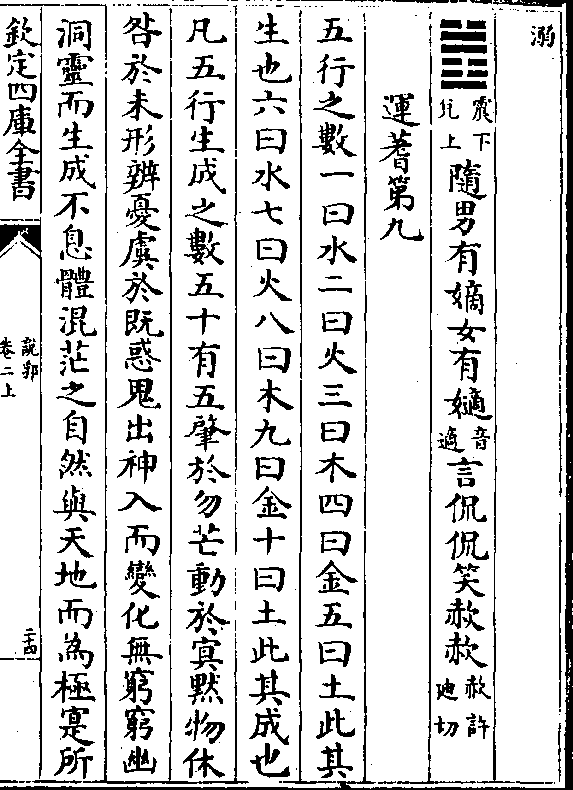 溺
震下兌上 隨男有嫡女有嫡音適言侃侃笑赥赥赥許迪切
運蓍第九
五行之數一曰水二曰火三曰木四曰金五曰土此其
生也六曰水七曰火八曰木九曰金十曰土此其成也
凡五行生成之數五十有五肇於勿芒動於寞默物休
咎於未形辨憂虞於既惑鬼出神入而變化無窮窮幽
洞靈而生成不息體混茫之自然與天地而為極寔所
欽定四庫全書
說郛
卷二上
二十四